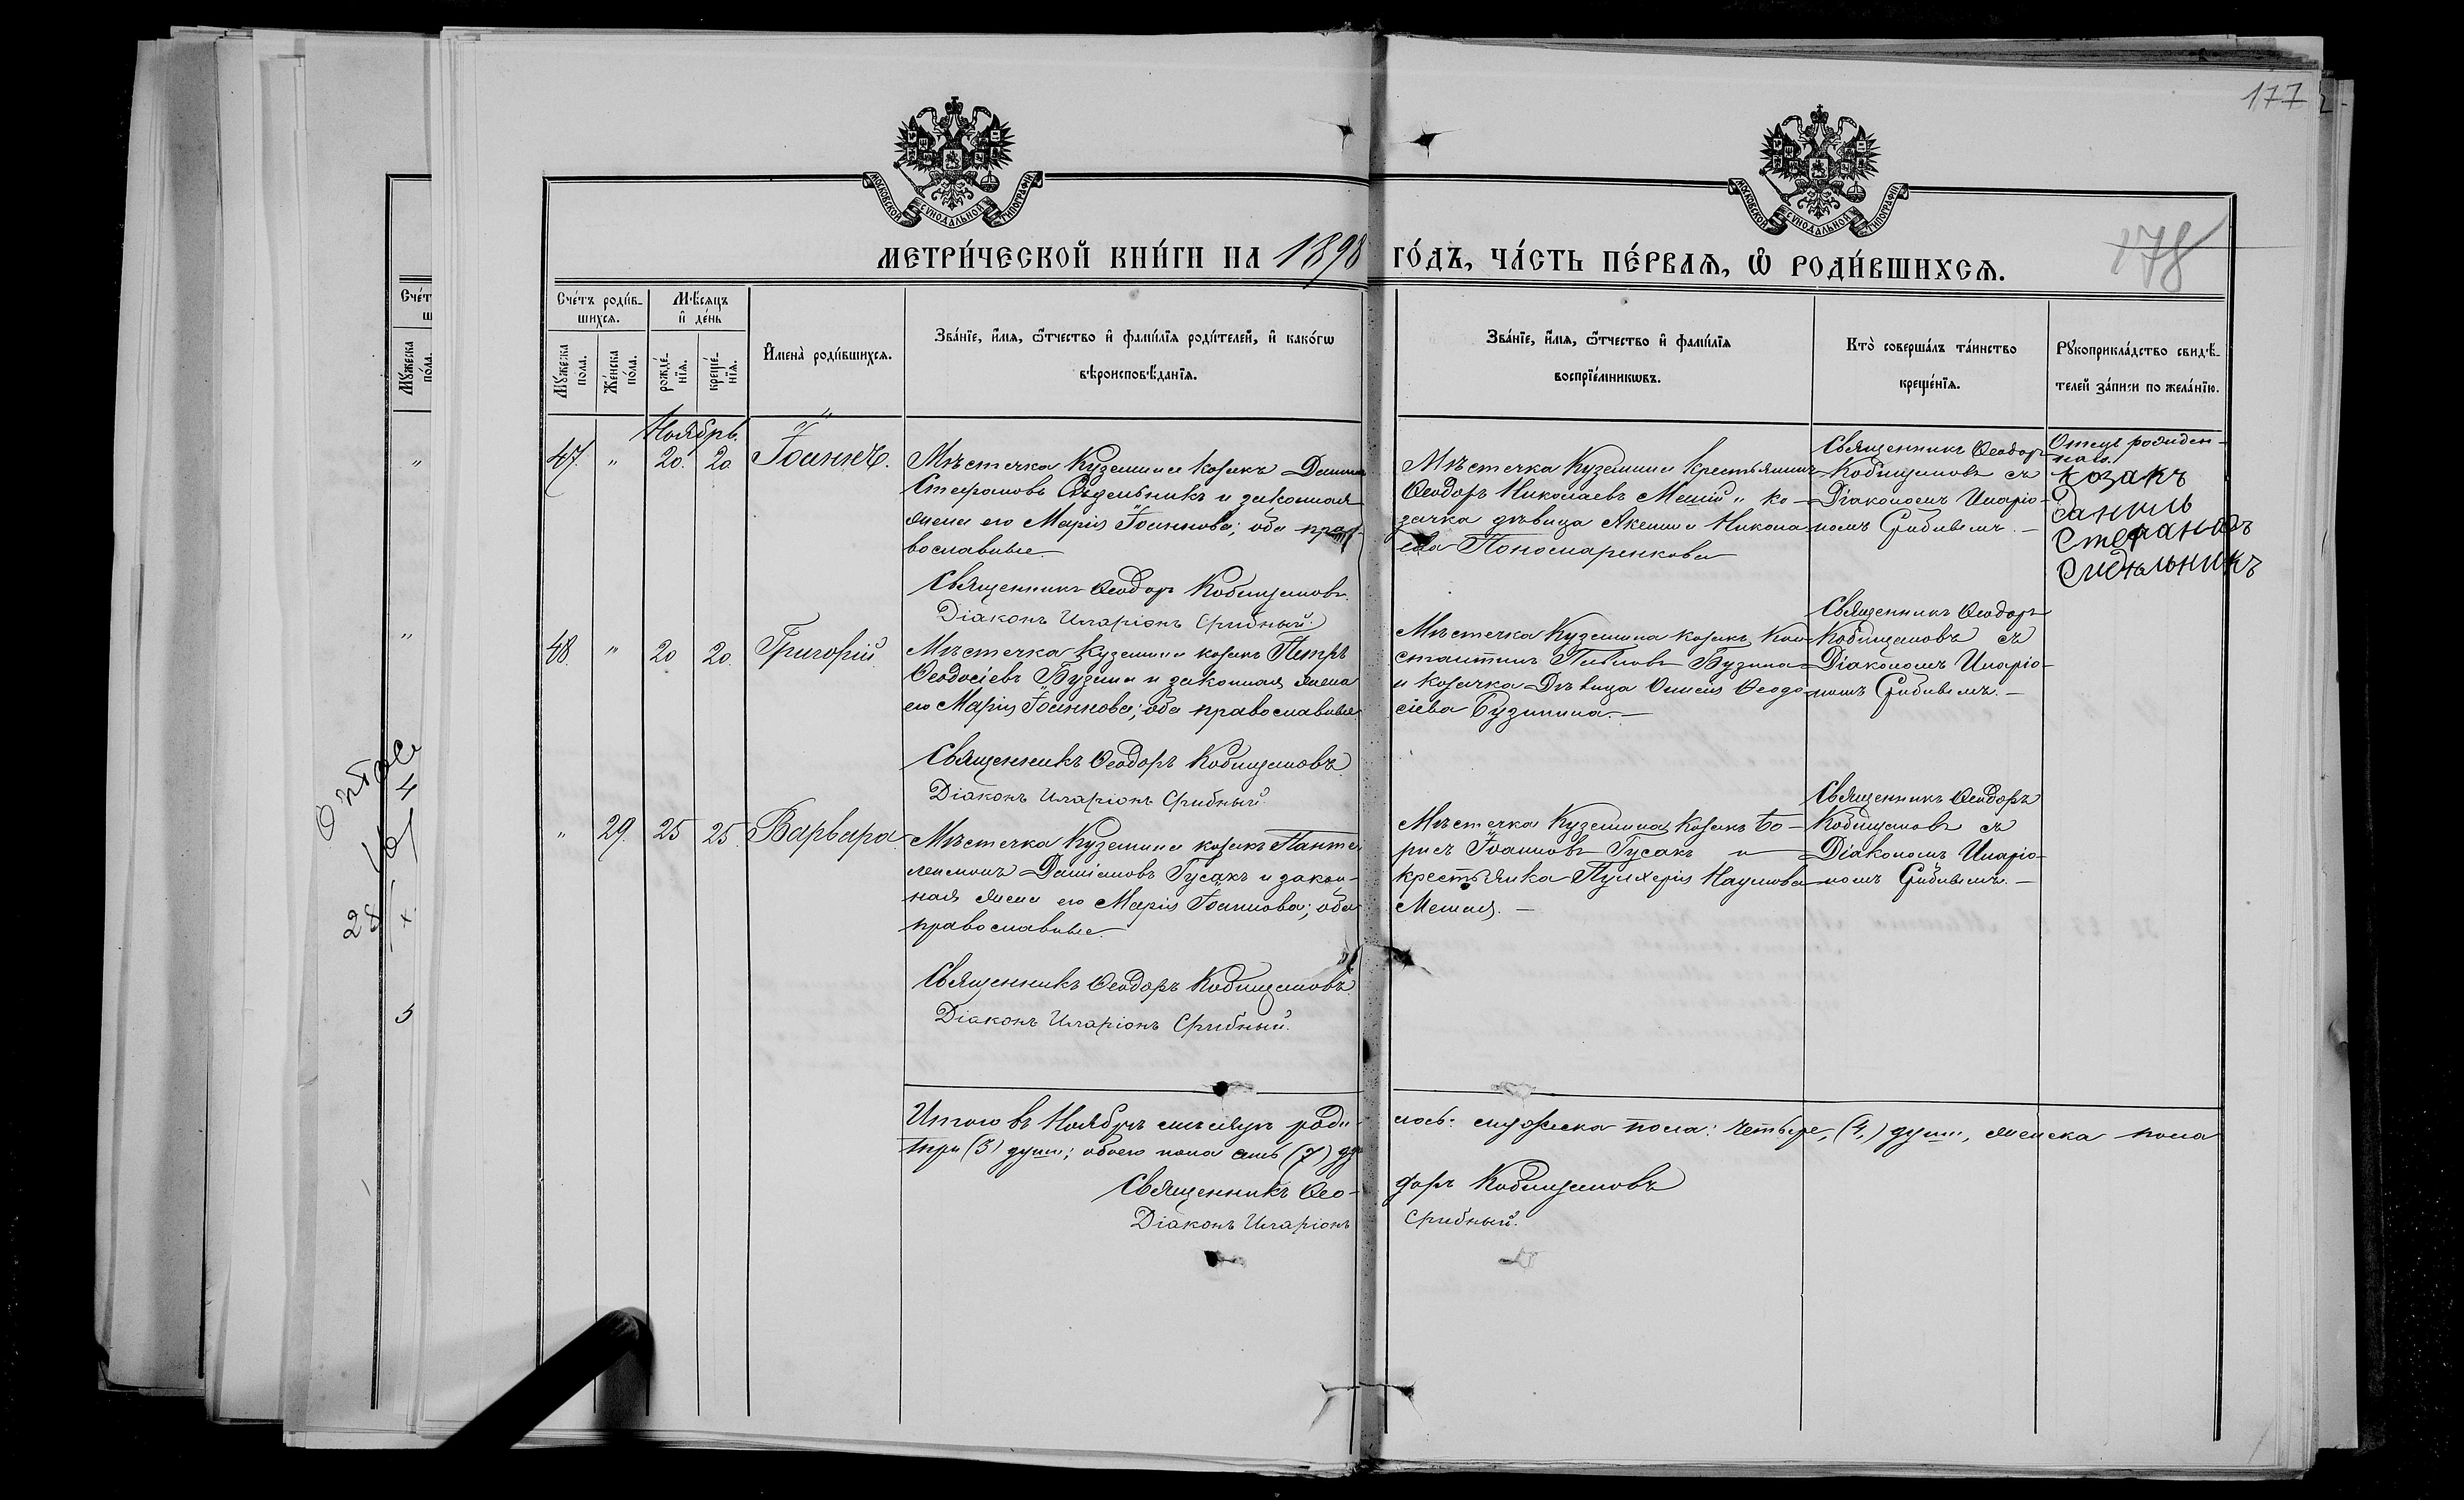 177
178
МОСКОВСКОЙ СѴНОДАЛЬНОЙ ТИПОГРАФІИ
МОСКОВСКОЙ СѴНОДАЛЬНОЙ ТИПОГРАФІИ
МЕТРИ́ЧЕСКОЙ КНИ́ГИ НА 1898 ГО́ДЪ, ЧА́СТЬ ПЕ́РВАѦ, Ѡ҆ РОДИ́ВШИХСѦ.
Сче́тъ роди́в-
шихсѧ.
Мѣ́сѧцъ
и҆ де́нь
Мꙋ́жеска
по́ла.
Же́нска
по́ла.
рожде́-
нїѧ.
креще́-
нїѧ.
И҆мена̀ роди́вшихсѧ.
Зва́нїе, и҆́мѧ, ѻ҆́тчество и҆ фамі́лїѧ роди́телей, и҆ како́гѡ
вѣроисповѣ́данїѧ.
Зва́нїе, и҆́мѧ, ѻ҆́тчество и҆ фамі́лїѧ
воспрїе́мникѡвъ.
Кто̀ соверша́лъ та́инство
креще́нїѧ.
Рꙋкоприкла́дство свидѣ́-
телей за́писи по жела́нїю.
Ноябрь.
47. " 20. 20. Іоаннъ.
Мѣстечка Куземина козакъ Данiилъ
Стефановъ Сѣдельникъ и законная
жена его Марія Іоаннова; оба пра-
вославные.
Священникъ Ѳеодоръ Кобищановъ.
Діаконъ Иларіонъ Срибный.
Мѣстечка Куземина крестьянинъ
Ѳеодоръ Николаевъ Меший и ко-
зачка дѣвица Акилина Никола-
ева Пономаренкова
Священникъ Ѳеодоръ
Кобищановъ съ
Діакономъ Иларіо-
номъ Срибнымъ.
Отецъ рожден-
наго
козакъ
Данилъ
Стефановъ
Сидельникъ
48. " 20 20. Григорій.
Мѣстечка Куземина козакъ Петръ
Ѳеодосіевъ Бузина и законная жена
его Марія Іоаннова; оба православные
Священникъ Ѳеодоръ Кобищановъ
Діаконъ Иларіонъ Срибный
Мѣстечка Куземина козакъ Кон-
стантинъ Павловъ Бузина
и козачка дѣвица Ѳеодо-
сіева Бузинина.
Священникъ Ѳеодоръ
Кобищановъ съ
Діакономъ Иларіо-
номъ Срибнымъ.
" 29. 25 25. Варвара
Мѣстечка Куземина козакъ Панте-
леимонъ Даміановъ Гусакъ и закон-
ная жена его Марія Іоаннова; оба
православные.
Священникъ Ѳеодоръ Кобищановъ.
Діаконъ Иларіонъ Срибный.
Мѣстечка Куземина козакъ Бо-
рисъ Іоанновъ Гусакъ и
крестьянка Пулхерія Наумова
Мешая.
Священникъ Ѳеодоръ
Кобищановъ съ
Діакономъ Иларіо-
номъ Срибнымъ.
Итого въ Ноябрѣ мѣсяцѣ роди-лось: мужеска пола: четыре, (4,) души, женска пола
три (3) души; обоего пола семь (7) ду
Священникъ Ѳео-доръ Кобищановъ
Діаконъ Иларіонъ Срибный.